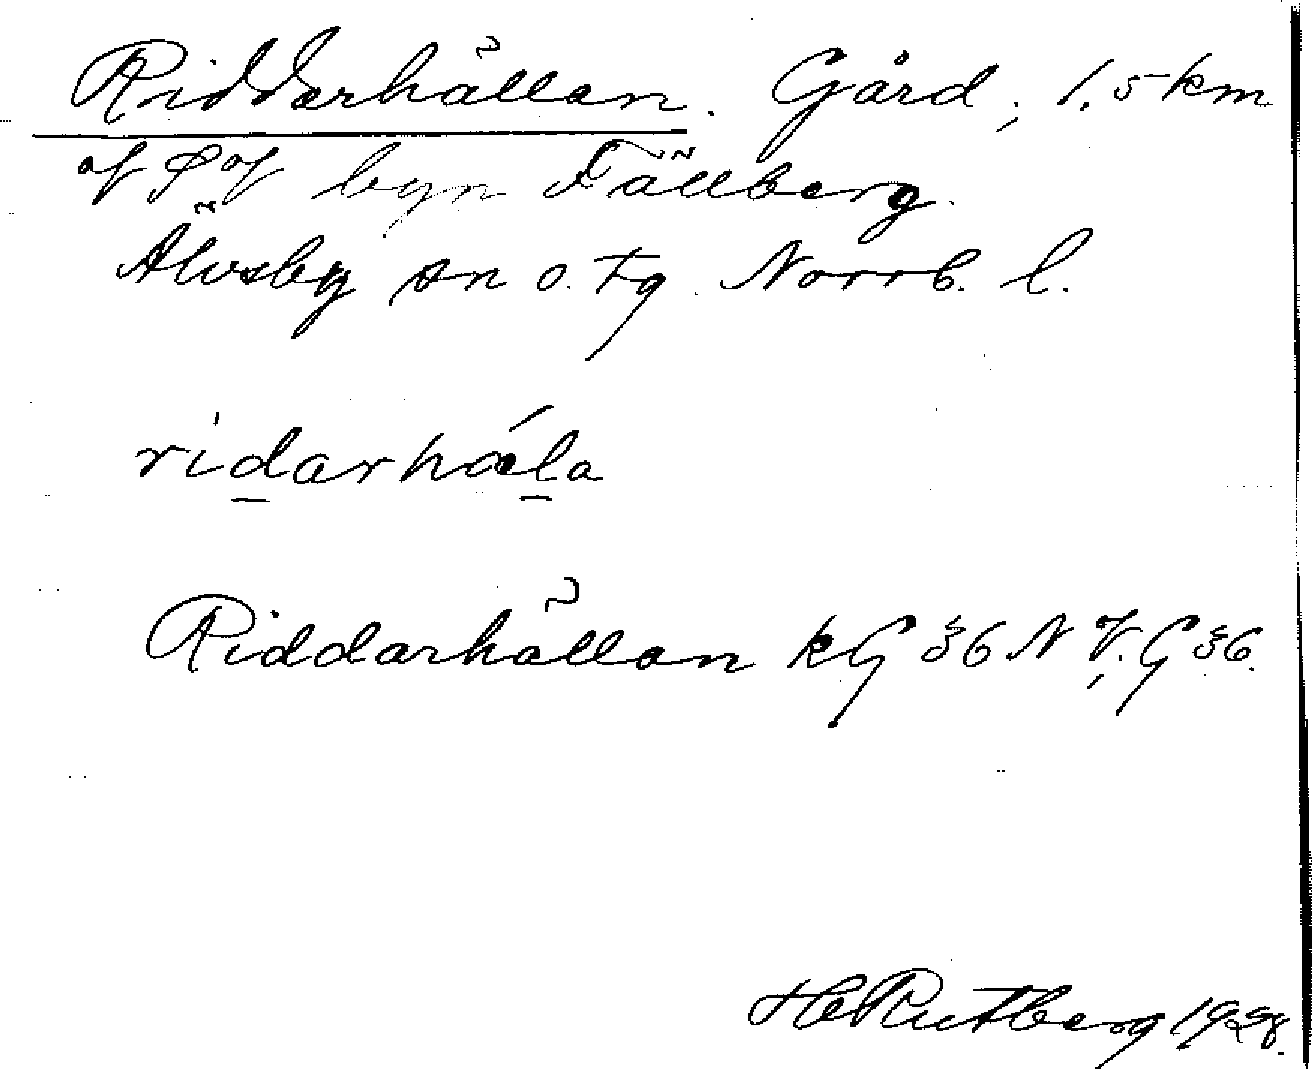 Ridderhällan. Gård, 1,5 km
af S af byn Fällberg.
Älvsby sn o. tg. Norrb. l.
ridarhæla
Riddarhällan kG 36 N V. G 36.
H Rutberg 1928.